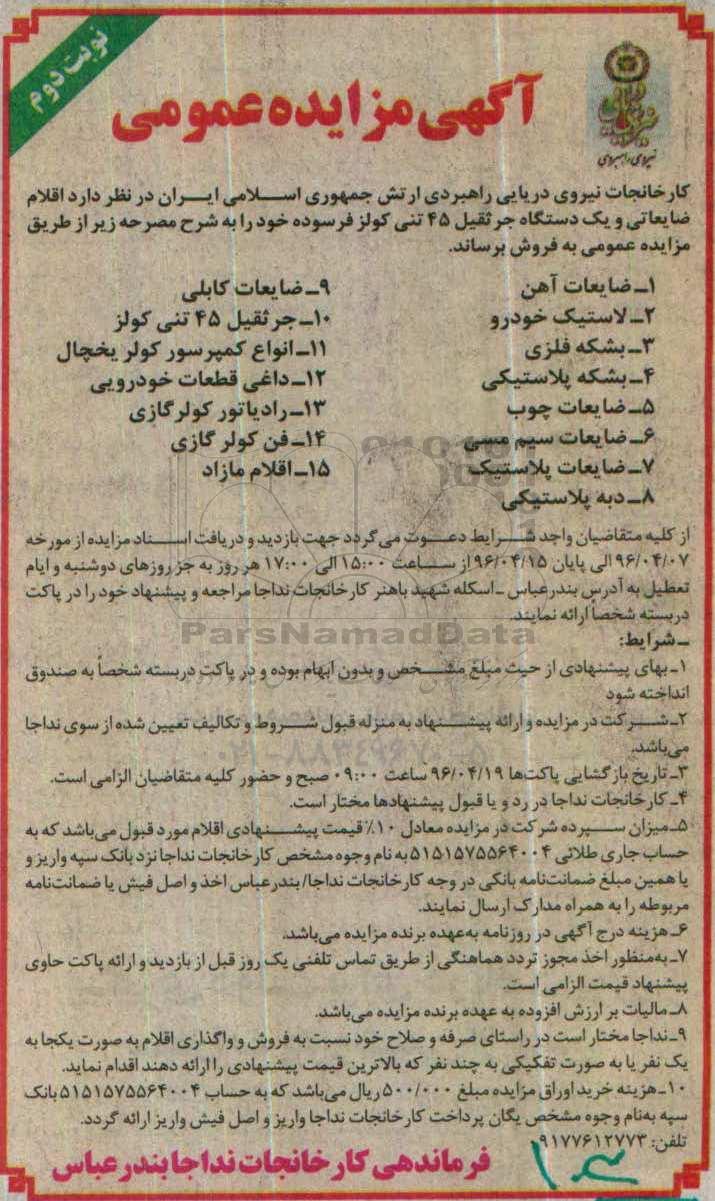 نوبت دوم
نیروی راهبردی
آگهی مزایده عمومی
کارخانجات نیروی دریایی راهبردی ارتش جمهوری اسلامی ایران در نظر دارد اقلام
ضایعاتی و یک دستگاه جرثقیل ۴۵ تنی کولز فرسوده خود را به شرح مصرحه زیر از طریق
مزایده عمومی به فروش برساند.
۱ـ ضایعات آهن
۲ـ لاستیک خودرو
۳ـ بشکه فلزی
۴ـ بشکه پلاستیکی
۵ـ ضایعات چوب
۶ـ ضایعات سیم مسی
۷ـ ضایعات پلاستیک
۸ـ دبه پلاستیکی
۹ـ ضایعات کابلی
۱۰ـ جرثقیل ۴۵ تنی کولز
۱۱ـ انواع کمپرسور کولر یخچال
۱۲ـ داغی قطعات خودرویی
۱۳ـ رادیاتور کولرگازی
۱۴ـ فن کولر گازی
۱۵ـ اقلام مازاد
از کلیه متقاضیان واجد شرایط دعوت می‌گردد جهت بازدید و دریافت اسناد مزایده از مورخه
۹۶/۰۴/۰۷ الی پایان ۹۶/۰۴/۱۵ از ساعت ۱۵:۰۰ الی ۱۷:۰۰ هر روز به جز روزهای دوشنبه و ایام
تعطیل به آدرس بندرعباس ـ اسکله شهید باهنر کارخانجات نداجا مراجعه و پیشنهاد خود را در پاکت
دربسته شخصاً ارائه نمایند.
ParsNamadData
ـ شرایط:
۱ـ بهای پیشنهادی از حیث مبلغ مشخص و بدون ابهام بوده و در پاکت دربسته شخصاً به صندوق
انداخته شود
۲ـ شرکت در مزایده و ارائه پیشنهاد به منزله قبول شروط و تکالیف تعیین شده از سوی نداجا
می‌باشد.
۰۲۱-۸۸۳۴۹۶۷۰-۵
۳ـ تاریخ بازگشایی پاکت‌ها ۹۶/۰۴/۱۹ ساعت ۰۹:۰۰ صبح و حضور کلیه متقاضیان الزامی است.
۴ـ کارخانجات نداجا در رد و یا قبول پیشنهادها مختار است.
۵ـ میزان سپرده شرکت در مزایده معادل ۱۰٪ قیمت پیشنهادی اقلام مورد قبول می‌باشد که به
حساب جاری طلائی ۵۱۵۱۵۷۵۵۶۴۰۰۴ به نام وجوه مشخص کارخانجات نداجا نزد بانک سپه واریز و
یا همین مبلغ ضمانت‌نامه بانکی در وجه کارخانجات نداجا/ بندرعباس اخذ و اصل فیش یا ضمانت‌نامه
مربوطه را به همراه مدارک ارسال نمایند.
۶ـ هزینه درج آگهی در روزنامه به‌عهده برنده مزایده می‌باشد.
۷ـ به‌منظور اخذ مجوز تردد هماهنگی از طریق تماس تلفنی یک روز قبل از بازدید و ارائه پاکت حاوی
پیشنهاد قیمت الزامی است.
۸ـ مالیات بر ارزش افزوده به عهده برنده مزایده می‌باشد.
۹ـ نداجا مختار است در راستای صرفه و صلاح خود نسبت به فروش و واگذاری اقلام به صورت یکجا به
یک نفر یا به صورت تفکیکی به چند نفر که بالاترین قیمت پیشنهادی را ارائه دهند اقدام نماید.
۱۰ـ هزینه خرید اوراق مزایده مبلغ ۵۰۰/۰۰۰ ریال می‌باشد که به حساب ۵۱۵۱۵۷۵۵۶۴۰۰۴ بانک
سپه به‌نام وجوه مشخص یگان پرداخت کارخانجات نداجا واریز و اصل فیش واریز ارائه گردد.
تلفن: ۹۱۷۷۶۱۲۷۷۳
فرماندهی کارخانجات نداجا بندرعباس